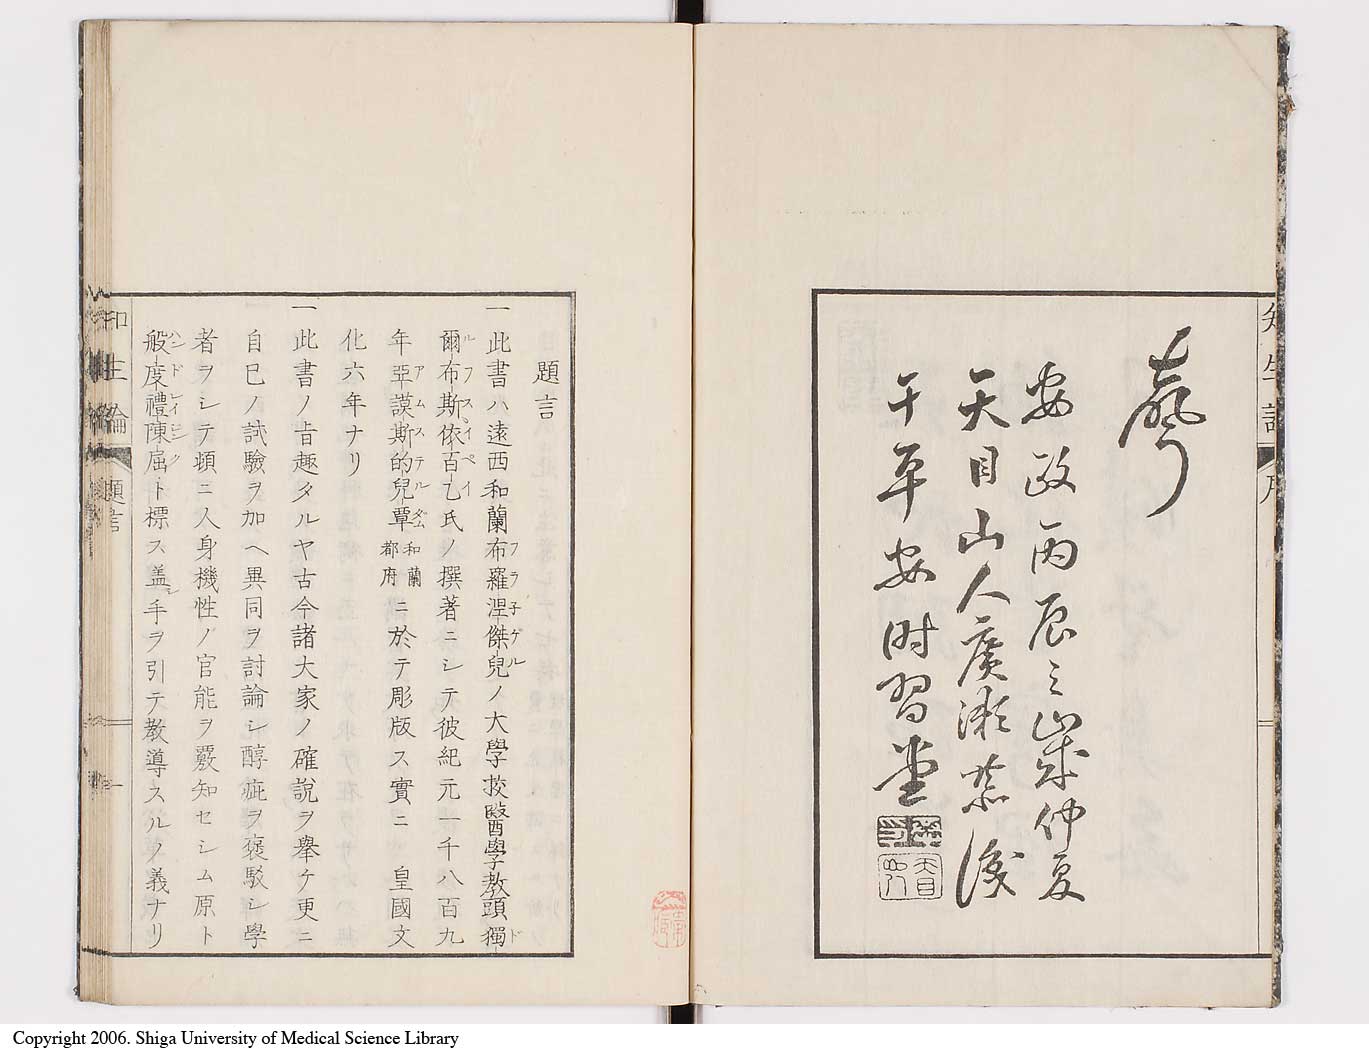 安政丙辰之歳仲夏
天目山人廣瀬恭後
于平安時習堂
題言
一此書ハ遠西和蘭布羅涅傑兒ノ大學挍醫學教頭獨
爾布斯依百乙氏ノ撰著ニシテ彼紀元一千八百九
年亞謨斯的兒覃和蘭都府ニ於テ彫版ス實ニ 皇國文
化六年ナリ
一此書ノ旨趣タルヤ古今諸大家ノ確説ヲ舉ケ更ニ
自已ノ試驗ヲ加ヘ異同ヲ討論シ醇疵ヲ褒駁シ學
者ヲシテ頓ニ人身機性ノ官能ヲ覈知セシム原ト
般度禮陳屈ト標ス盖シ手ヲ引テ教導スルノ義ナリ
題言
Copyright 2006. Shiga University of Medical Science Library